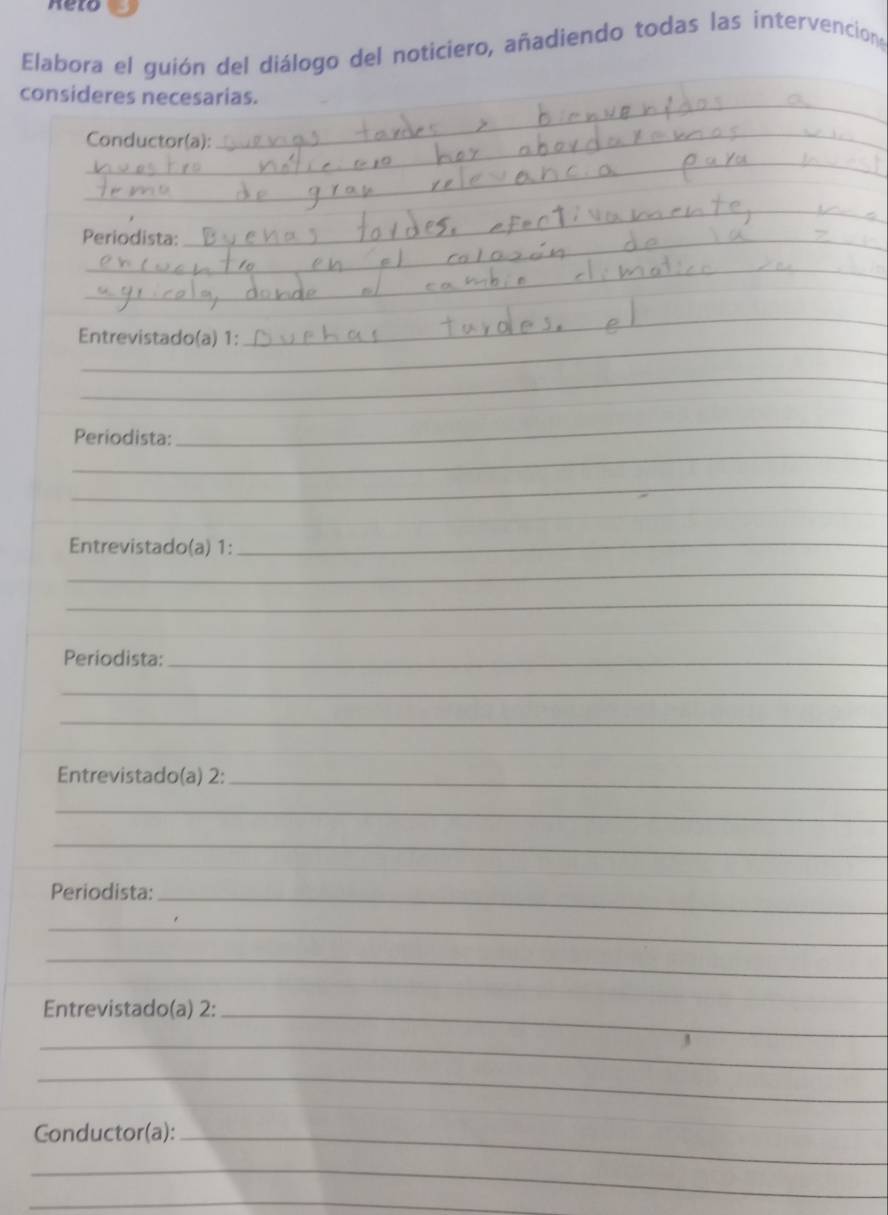 Reto 3
Elabora el guión del diálogo del noticiero, añadiendo todas las intervencione
consideres necesarias.
Conductor(a): Buenas tardes y bienvenidos a
nuestro noticiero hoy abordaremos un
tema de gran relevancia para nuest
Periodista: Buenas tardes. efectivamente, me
encuentro en el corazón de la zon
agricola, donde el cambio climatico
Entrevistado(a) 1: Buenas tardes. el
Periodista:
Entrevistado(a) 1:
Periodista:
Entrevistado(a) 2:
Periodista:
Entrevistado(a) 2:
Conductor(a):